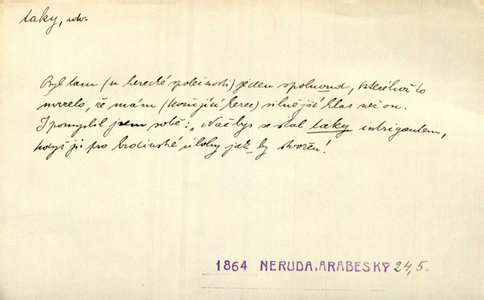 taky, adv.
Byl tam (v herecké společnosti) jeden spolunond, kteréhož to
mrzelo, že mám (končující herec) silnější hlas než on.
I pomyslil jsem sobě: „Nač bys se stal taky intrigantem,
když jsi pro hrdinské úlohy jak by stvořen!
1864 NERUDA, ARABESKY 24, 5.